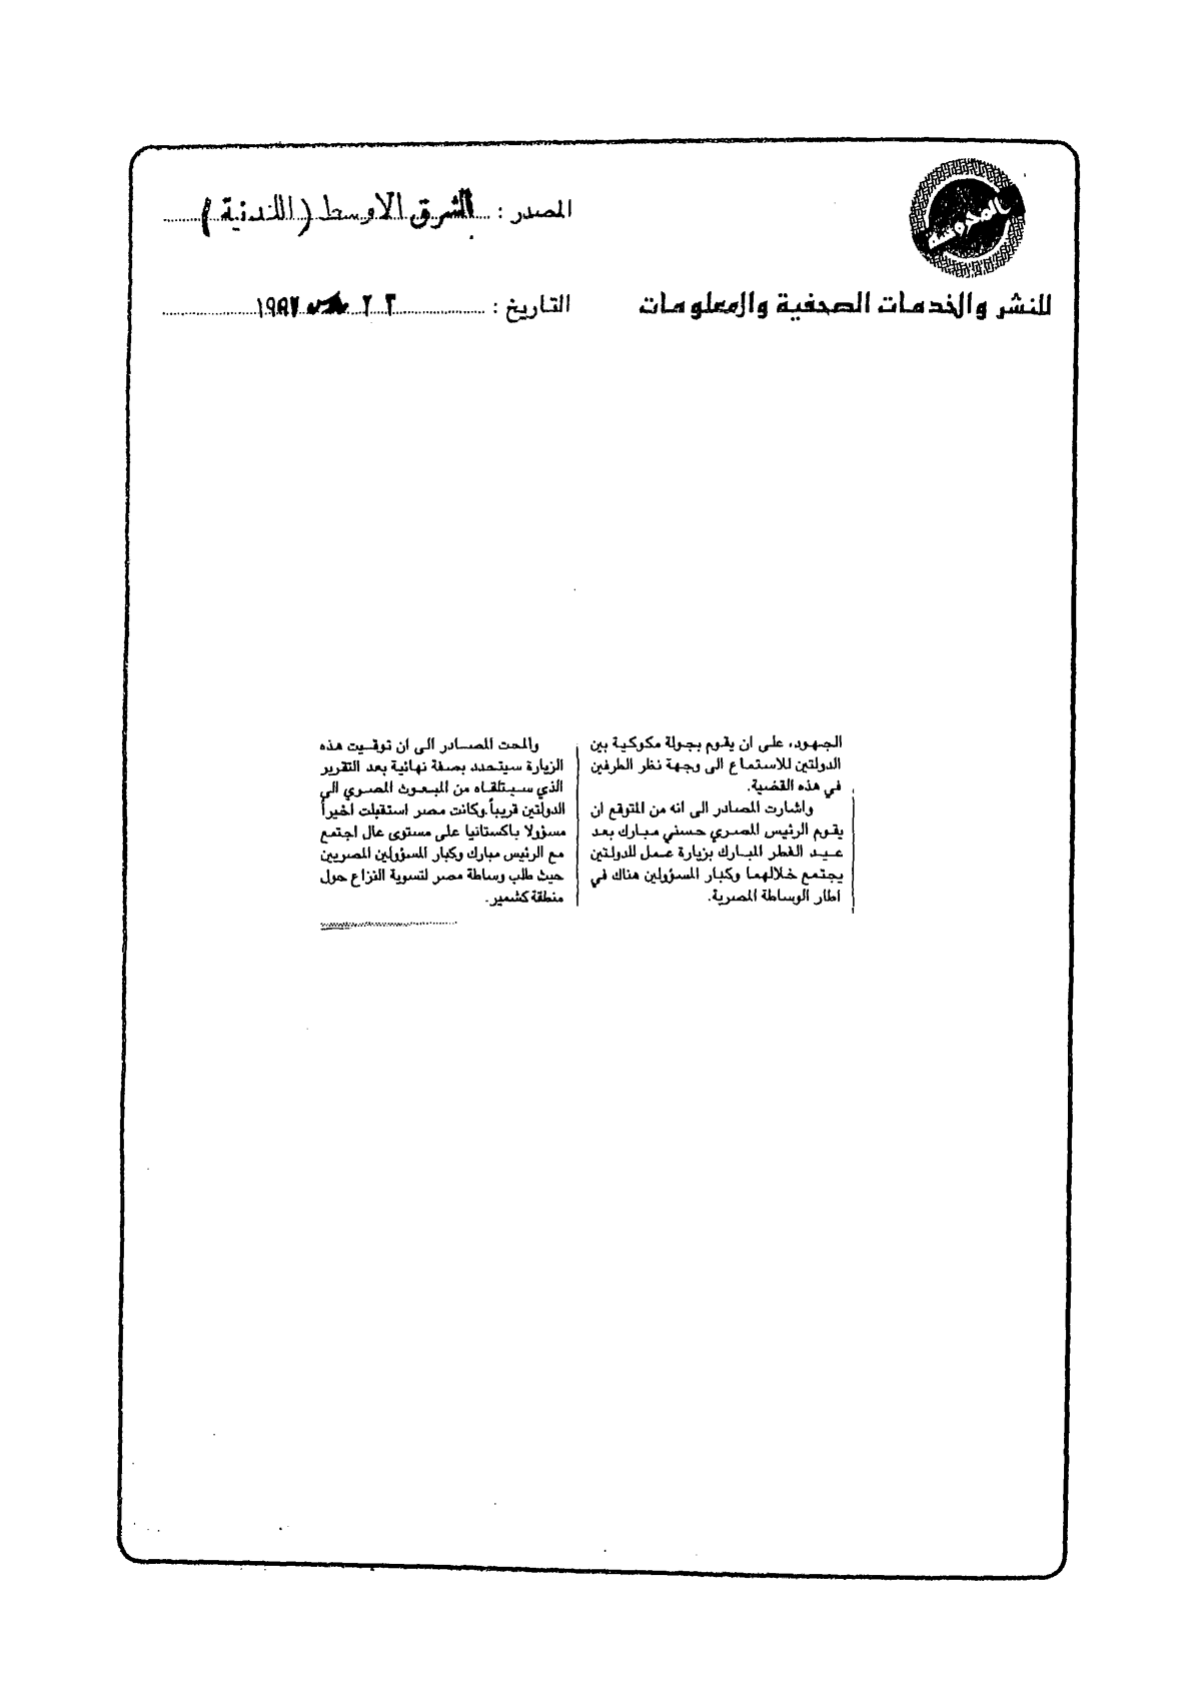 المحروسة
المصدر : الشرق الاوسط (اللندنية)
للنشر والخدمات الصحفية والمعلومات
التاريخ : ٢٢ مارس ١٩٩٧
الجهود، على ان يقوم بجولة مكوكية بين
الدولتين للاستماع الى وجهة نظر الطرفين
في هذه القضية.
واشارت المصادر الى انه من المتوقع ان
يقوم الرئيس المصري حسني مبارك بعد
عيد الفطر المبارك بزيارة عمل للدولتين
يجتمع خلالهما وكبار المسؤولين هناك في
اطار الوساطة المصرية.
والمحت المصادر الى ان توقيت هذه
الزيارة سيتحدد بصفة نهائية بعد التقرير
الذي سيتلقاه من المبعوث المصري الى
الدولتين قريباً.وكانت مصر استقبلت اخيراً
مسؤولا باكستانيا على مستوى عال اجتمع
مع الرئيس مبارك وكبار المسؤولين المصريين
حيث طلب وساطة مصر لتسوية النزاع حول
منطقة كشمير.